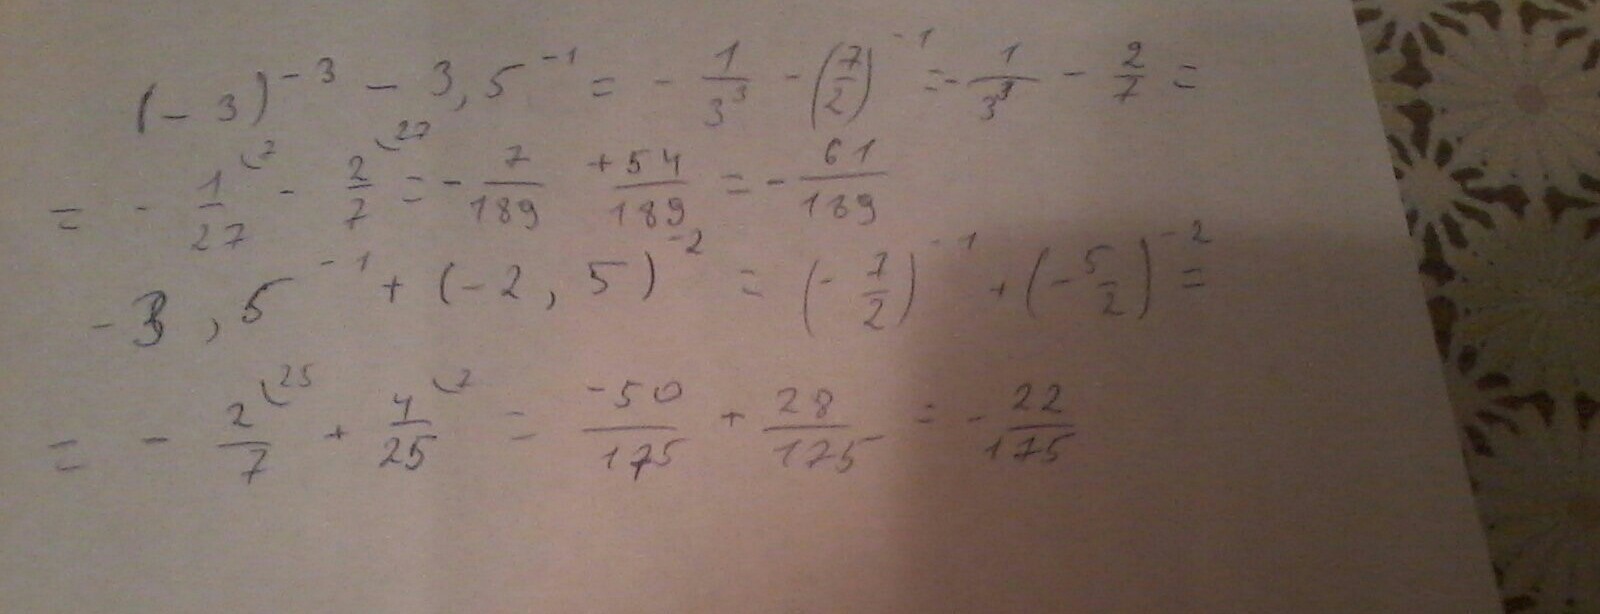 (-3)^{-3} - 3,5^{-1} = - \frac{1}{3^3} - (\frac{7}{2})^{-1} = - \frac{1}{3^3} - \frac{2}{7} =
= - \frac{1}{27}^{(7} - \frac{2}{7}^{(27} = - \frac{7}{189} \frac{+54}{189} = - \frac{61}{189}
-3,5^{-1} + (-2,5)^{-2} = (-\frac{7}{2})^{-1} + (-\frac{5}{2})^{-2} =
= - \frac{2}{7}^{(25} + \frac{4}{25}^{(7} = \frac{-50}{175} + \frac{28}{175} = - \frac{22}{175}